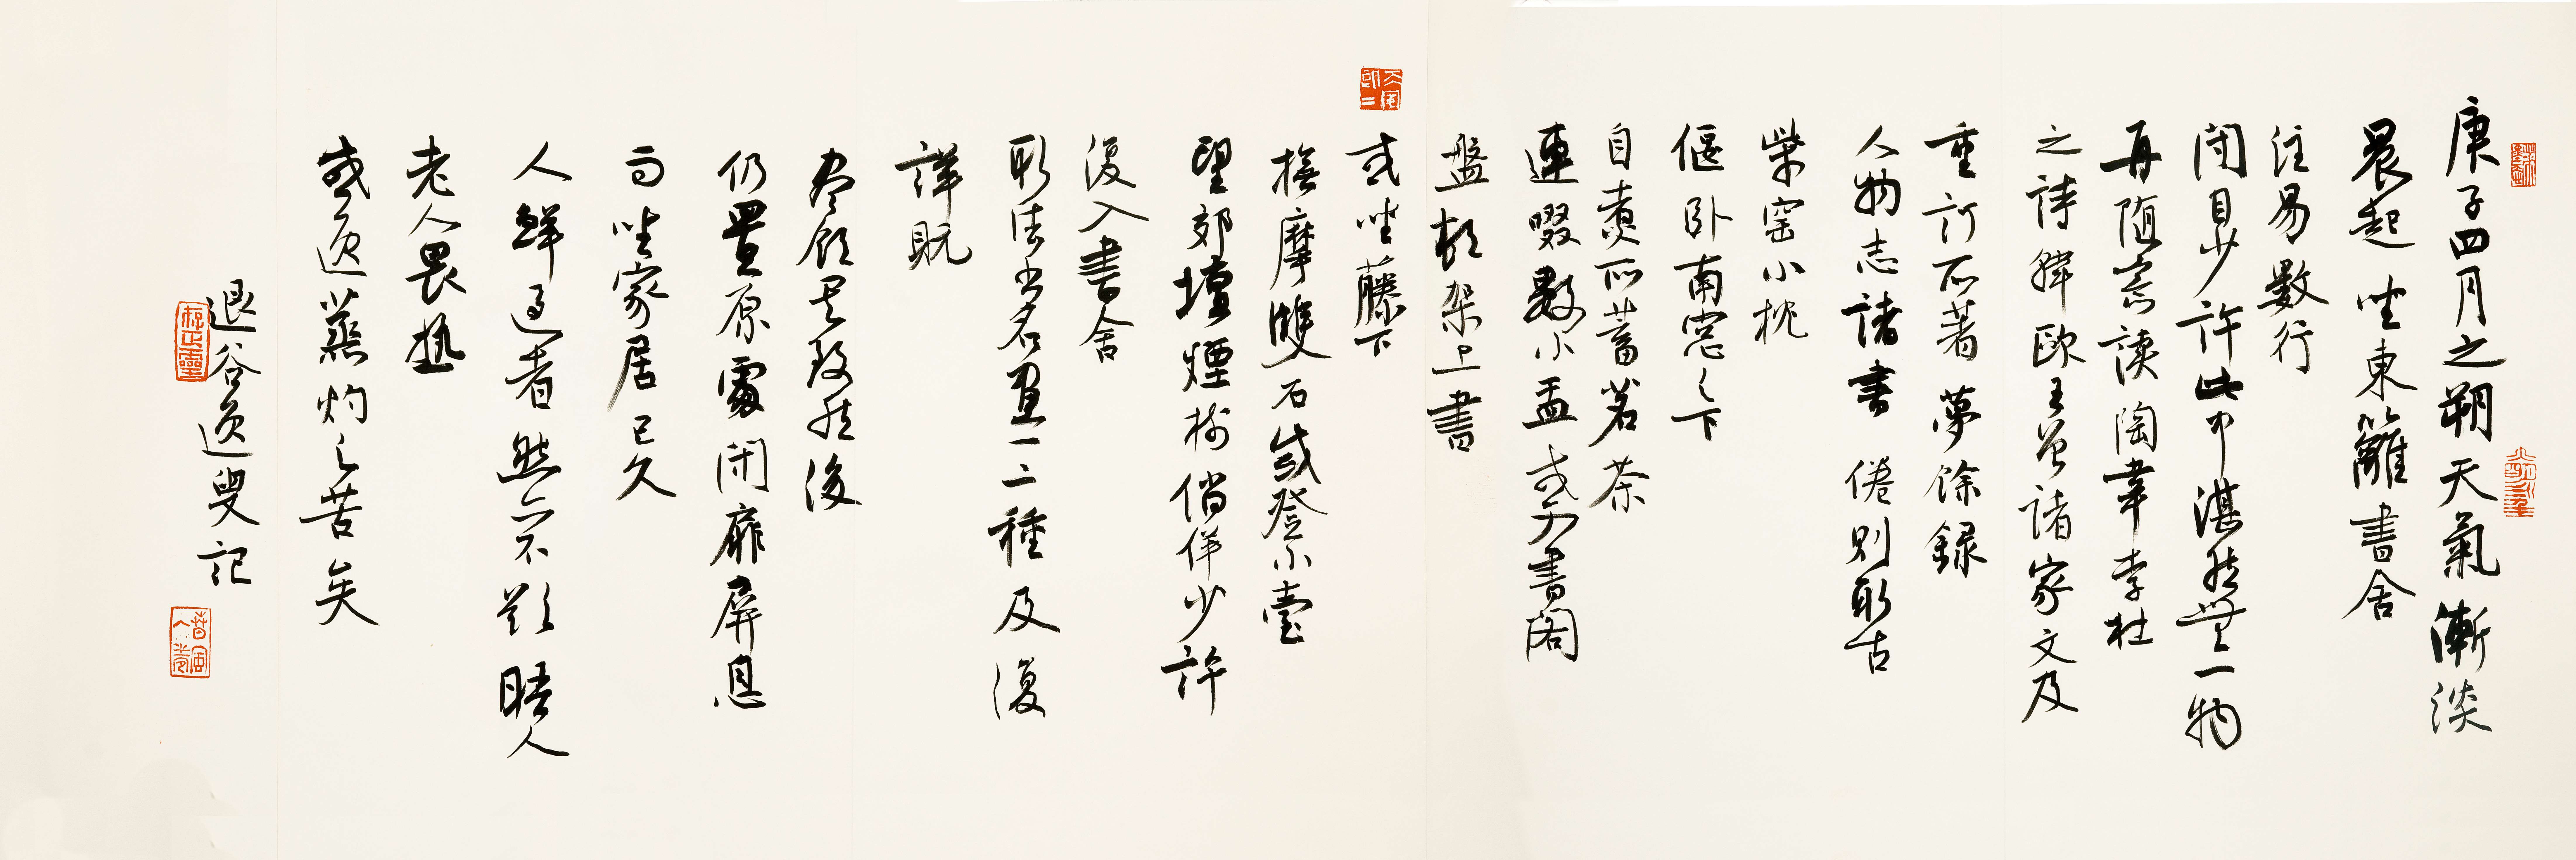 庚子四月之朔天氣漸淡
晨起坐東籬書舍
注易數行
閉目少許此中湛然無一物
再随意读陶韋李杜
之詩韓歐王曾諸家文及
重訂所著夢餘録
人物志諸書倦則取古
柴窑小枕
偃卧南窓之下
自煮所蓄茗茶
連啜數小盂或入書閣
盤桓架上書
或坐藤下
撫摩雙石或登小臺
望郊壇煙樹倘佯少許
復入書舍
取法書名畫一二種反復
詳貺
盡領其致然後
仍置原處閉扉屏息
而坐家居已久
人鮮過者然亦不欲晤人
老人畏熱
或逃蒸灼之苦矣
退谷逸叟記